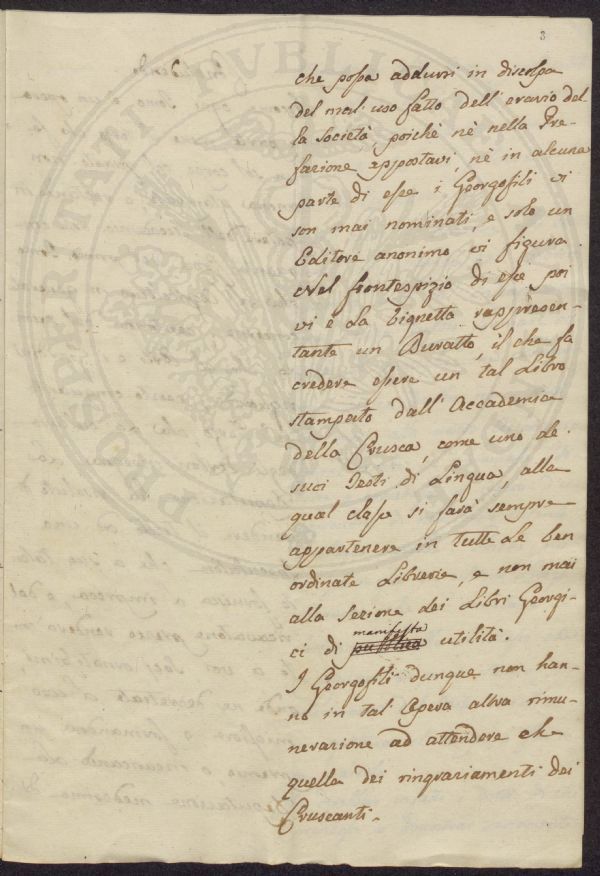 3
che possa addursi in discolpa
del mal' uso fatto dell' erario del
la Società poichè nè nella Pre-
fazione appostavi, nè in alcuna
parte di esse i Georgofili vi
son mai nominati, e solo un
Editore anonimo vi figura.
Nel frontespizio di esse poi
vi è la vignetta rappresen-
tante un Buratto, il che fa
credere essere un tal Libro
stampato dall' Accademia
della Crusca, come uno de'
suoi Testi di Lingua, alla
qual classe si farà sempre
appartenere in tutte le ben
ordinate Librerie, e non mai
alla sezione dei Libri Georgi-
manifesta
ci di pubblica utilità.
I Georgofili dunque non han-
no in tal Opera altra rimu-
nerazione ad attendere che
quella dei ringraziamenti dei
Cruscanti.
PROSPERITATI PVBLICAE